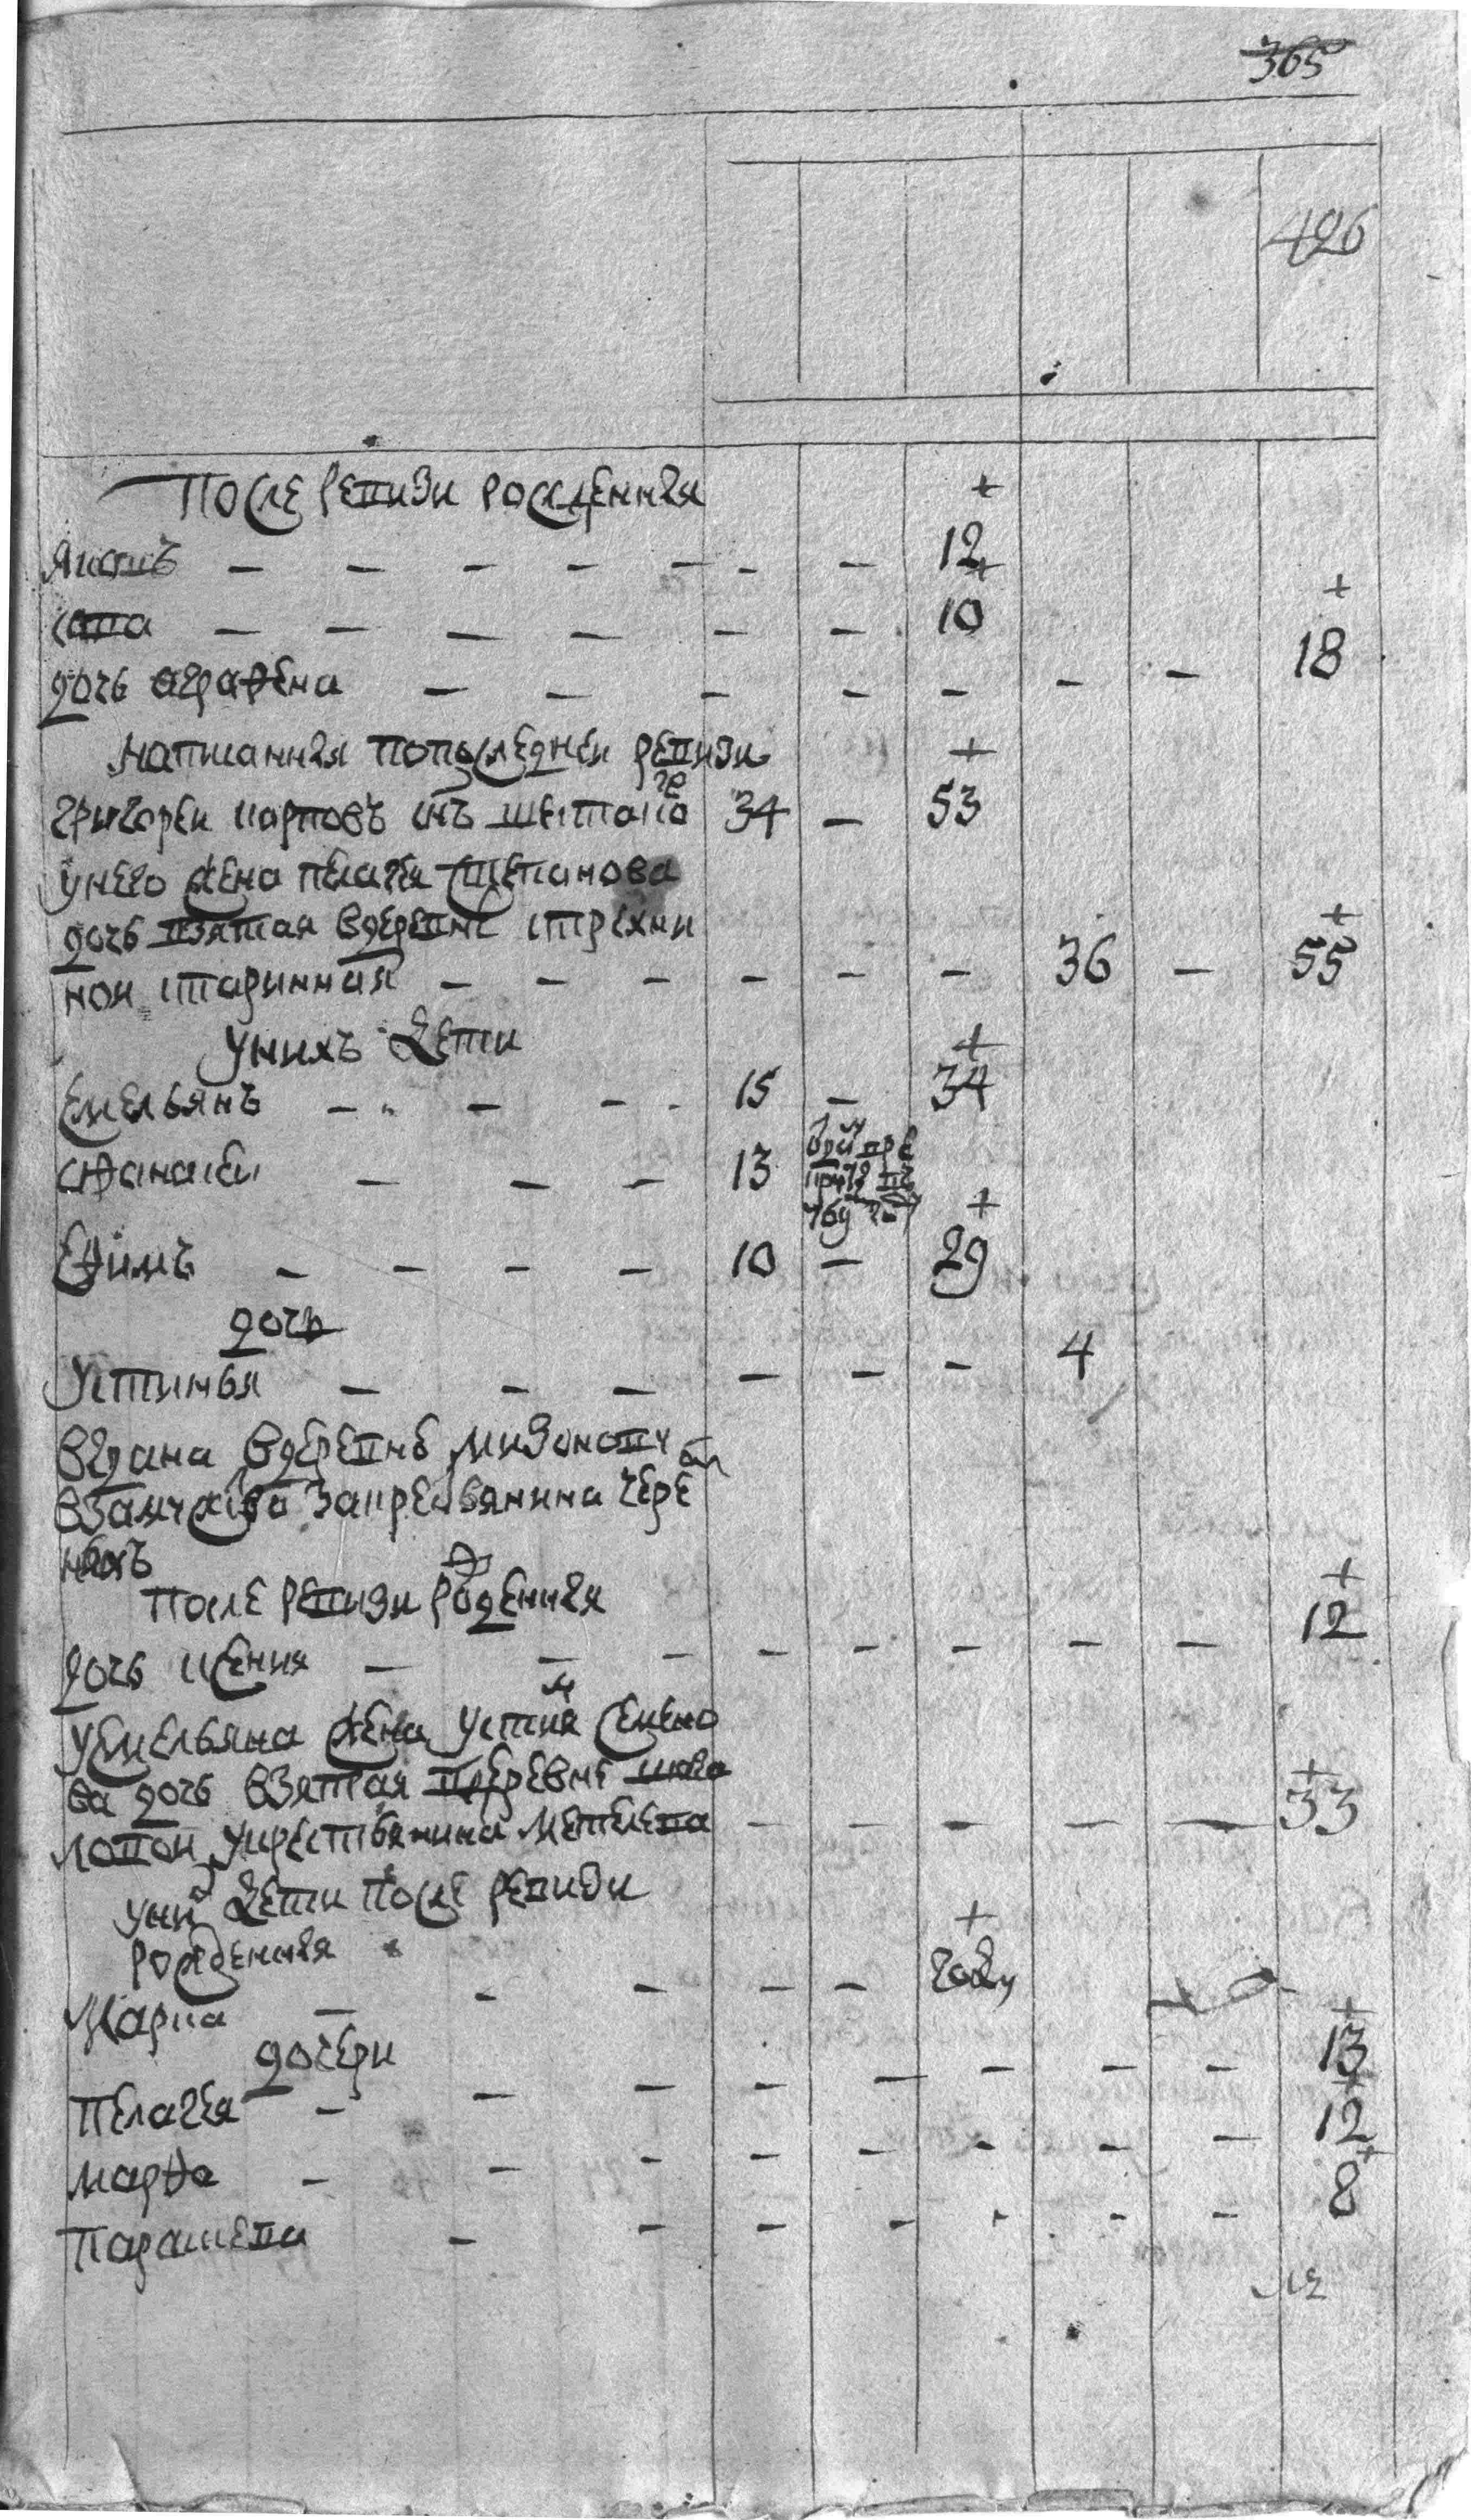 365
426
После ревизи рожденныя
Яковъ — — — — — — — 12
Сава — — — — — — 10
дочь аграфена — — — — — — — 18
написанныя попоследнеи ревизи
григореи карповъ снъ 34 — 53
унего жена пелагея степанова
дочь взятая вдеревне стрехни
нои старинная — — — — — — 36 — 55
Унихъ дети
Емельянъ — — — 15 — 34
афанасеи — — — 13
Ефимъ — — — — 10 — 29
дочь
Устинья — — — — — — 4
выдана вдеревне
взамужство закрестьянина
После ревизи рожденныя
дочь ксения — — — — — — — — 12
Уемельяна жена Устинья Семено
ва дочь взятая вдеревне
ловои укрестьянина — — — — — 33
уних дети после ревизи
рожденныя
Марка — — — — — году
дочери
Пелагея — — — — — — — — 13
марфа — — — — — — — — 12
Парасковя — — — — — — — 8